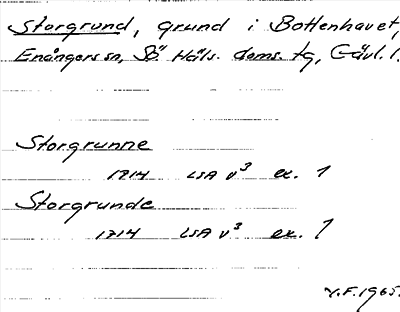 Storgrund, grund i Bottenhavet,
Enångers sn, Sö. Häls. doms. tg, Gävl. l.
Storgrunne
1714 LSA v³ ex. 1
Storgrunde
1714 LSA v³ ex. 1
V.F. 1965.